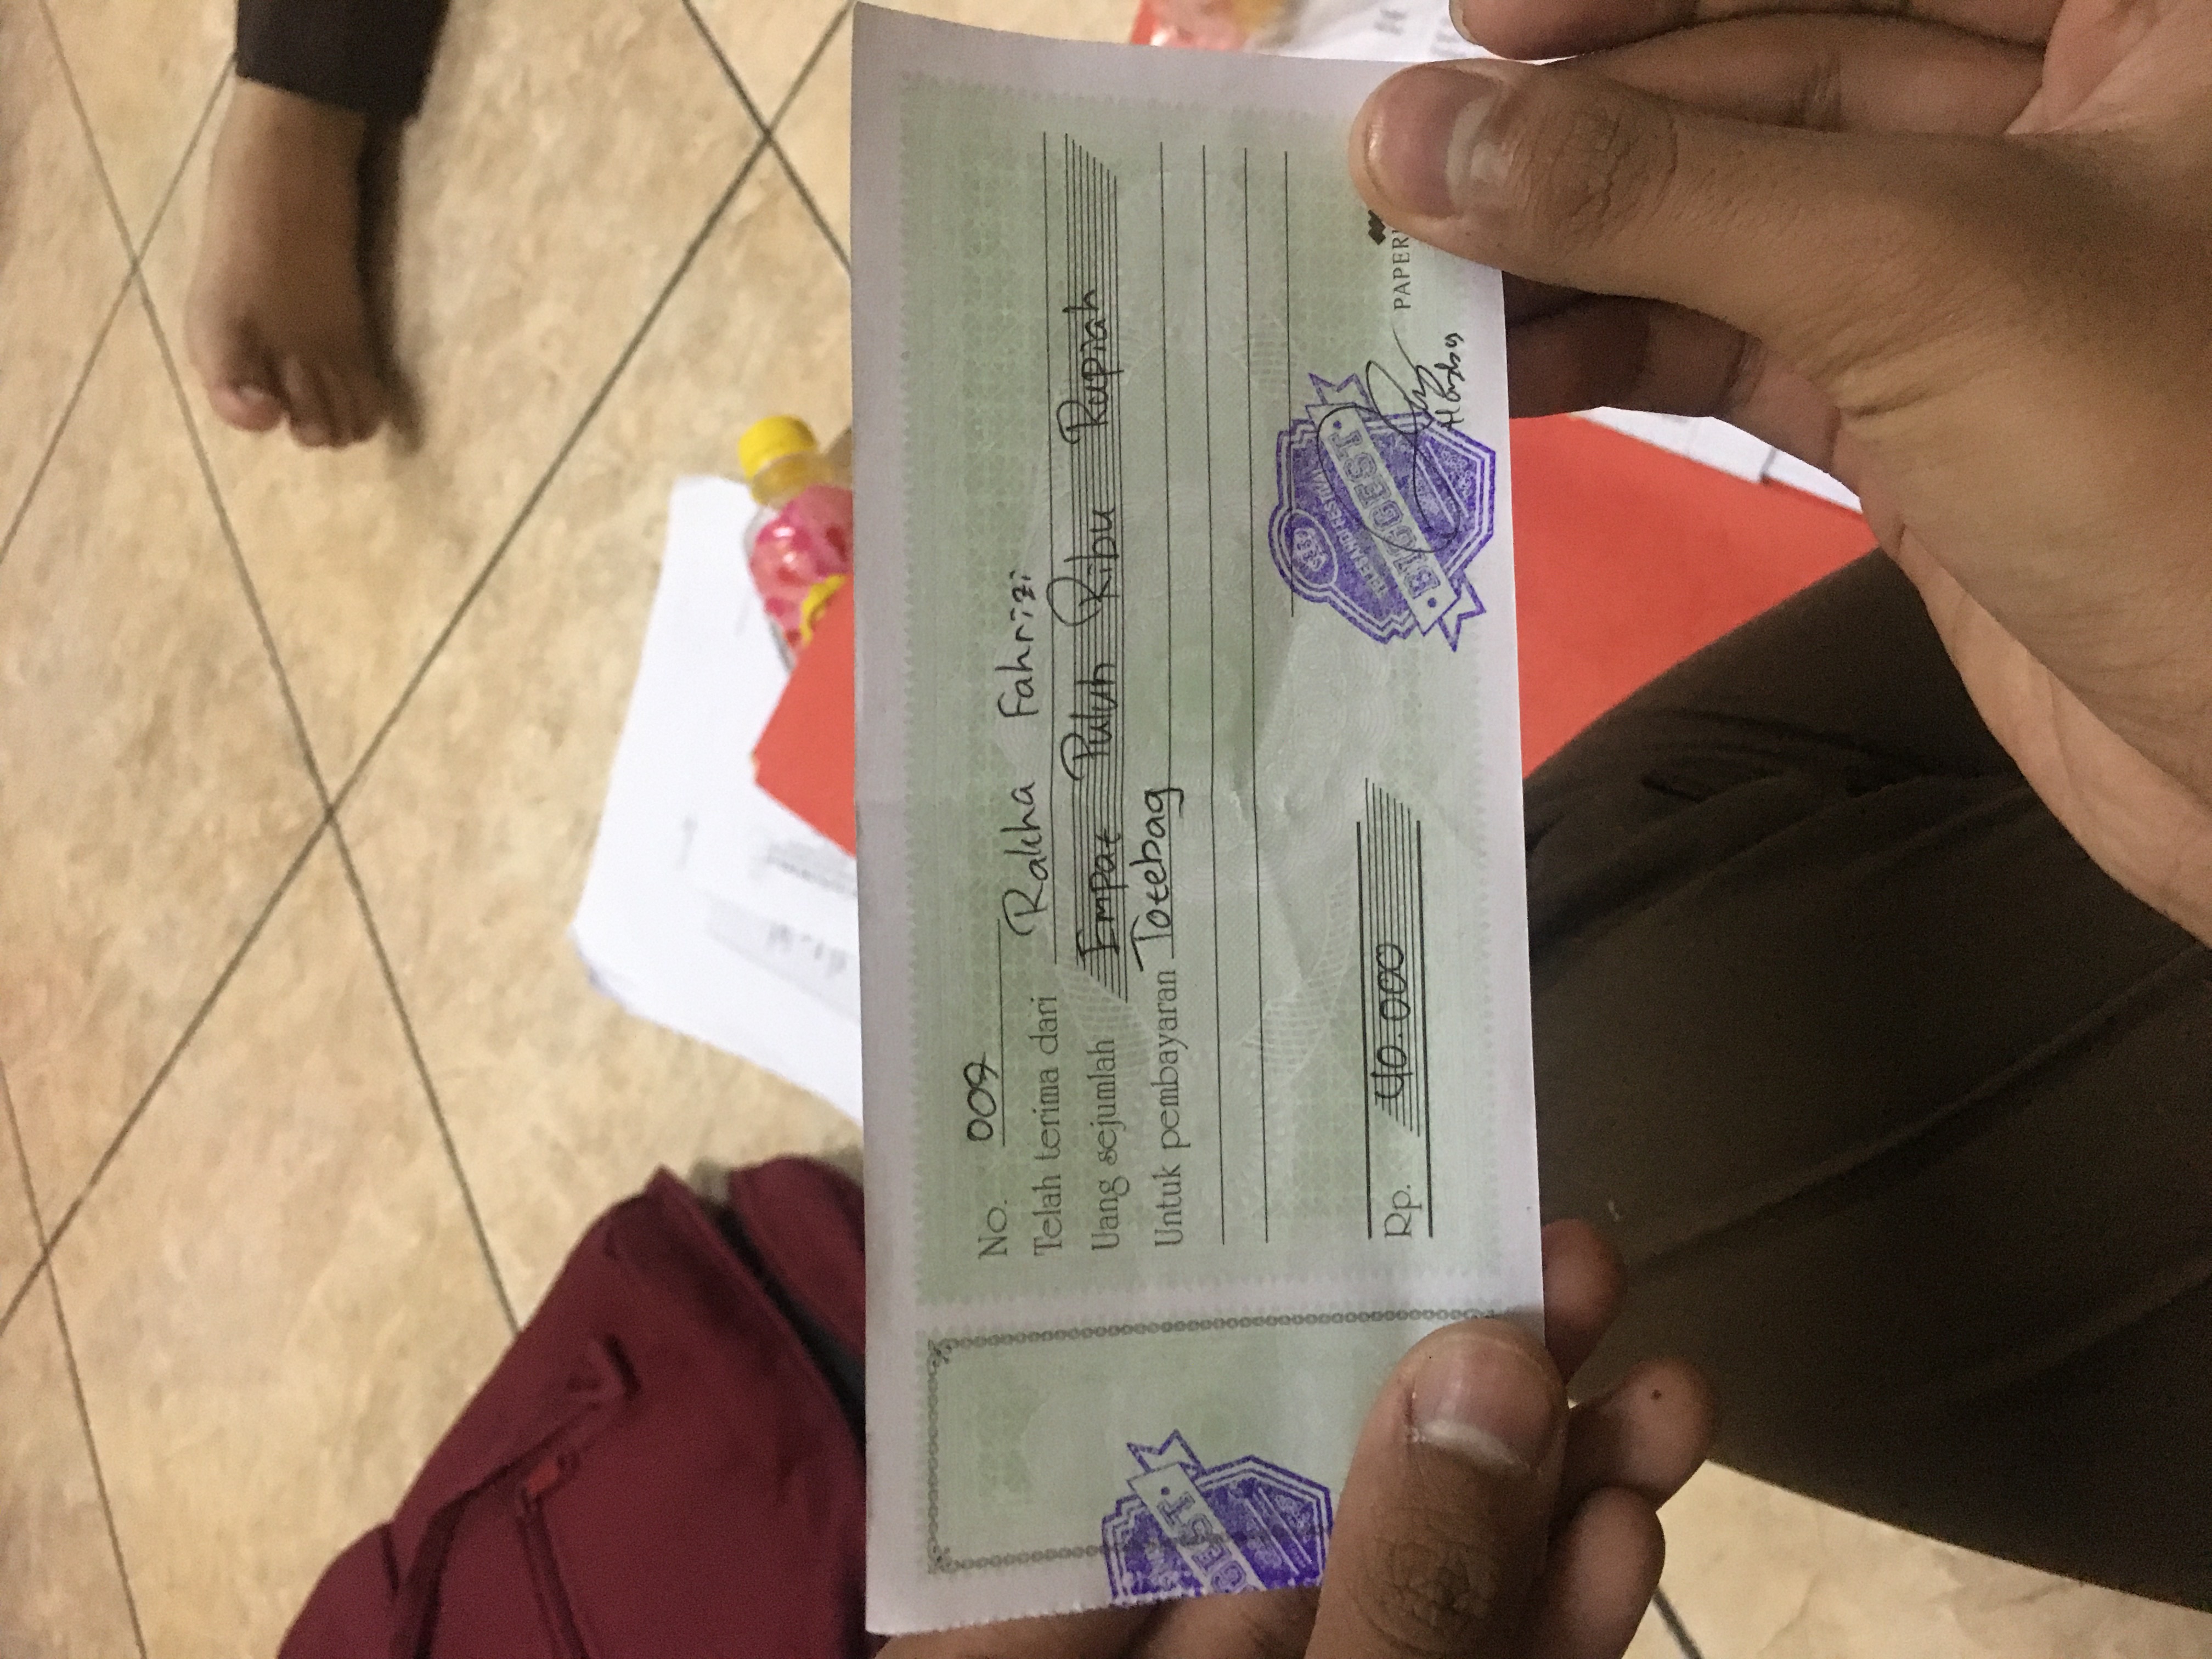 No. 009
Telah terima dari Rakha Fahrizi
Uang sejumlah Empat Puluh Ribu Rupiah
Untuk pembayaran Totebag
Rp. 40.000
FESTIVAL
BIGGEST
GEST
PAPER